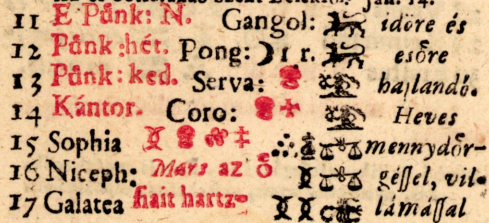 11 E Pünk: N. Gangol: idöre és
12 Pünk: hét. Pong: ☽ 1 r. esőre
13 Pünk: ked. Serva: hajlandó.
14 Kántor. Coro: Heves
15 Sophia mennydör-
16 Niceph: Mars az géſſel, vil-
17 Galatea hait hartz- lámáſſal